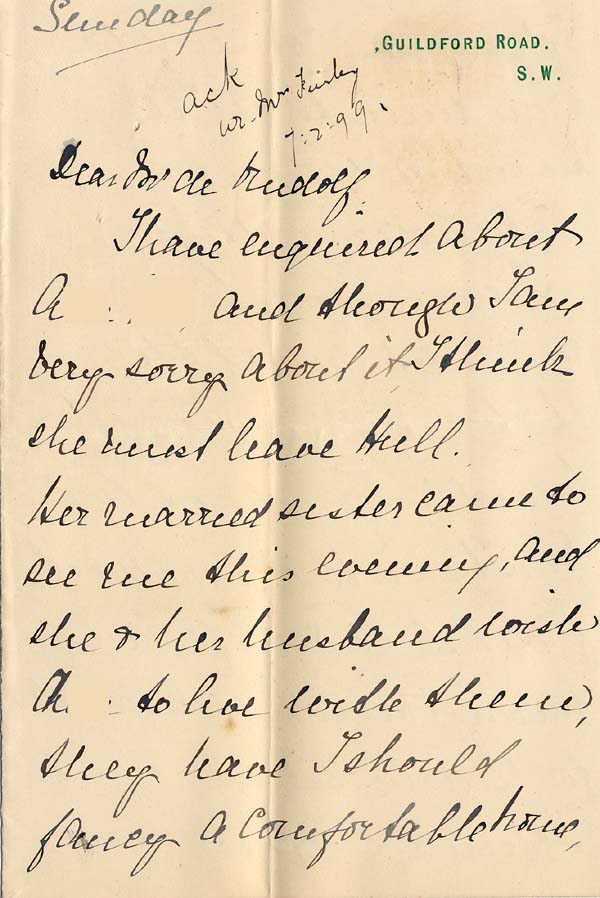 Sunday
,GUILDFORD ROAD.
S.W.
ack
wr. Mrs
7:2:99.
Dear Mr de Rudolf,
I have enquired about
A and though I am
very sorry about it, I think
she must leave Hull.
Her married sister came to
see me this evening, and
she & her husband wish
A. to live with them,
they have I should
fancy a comfortable home,